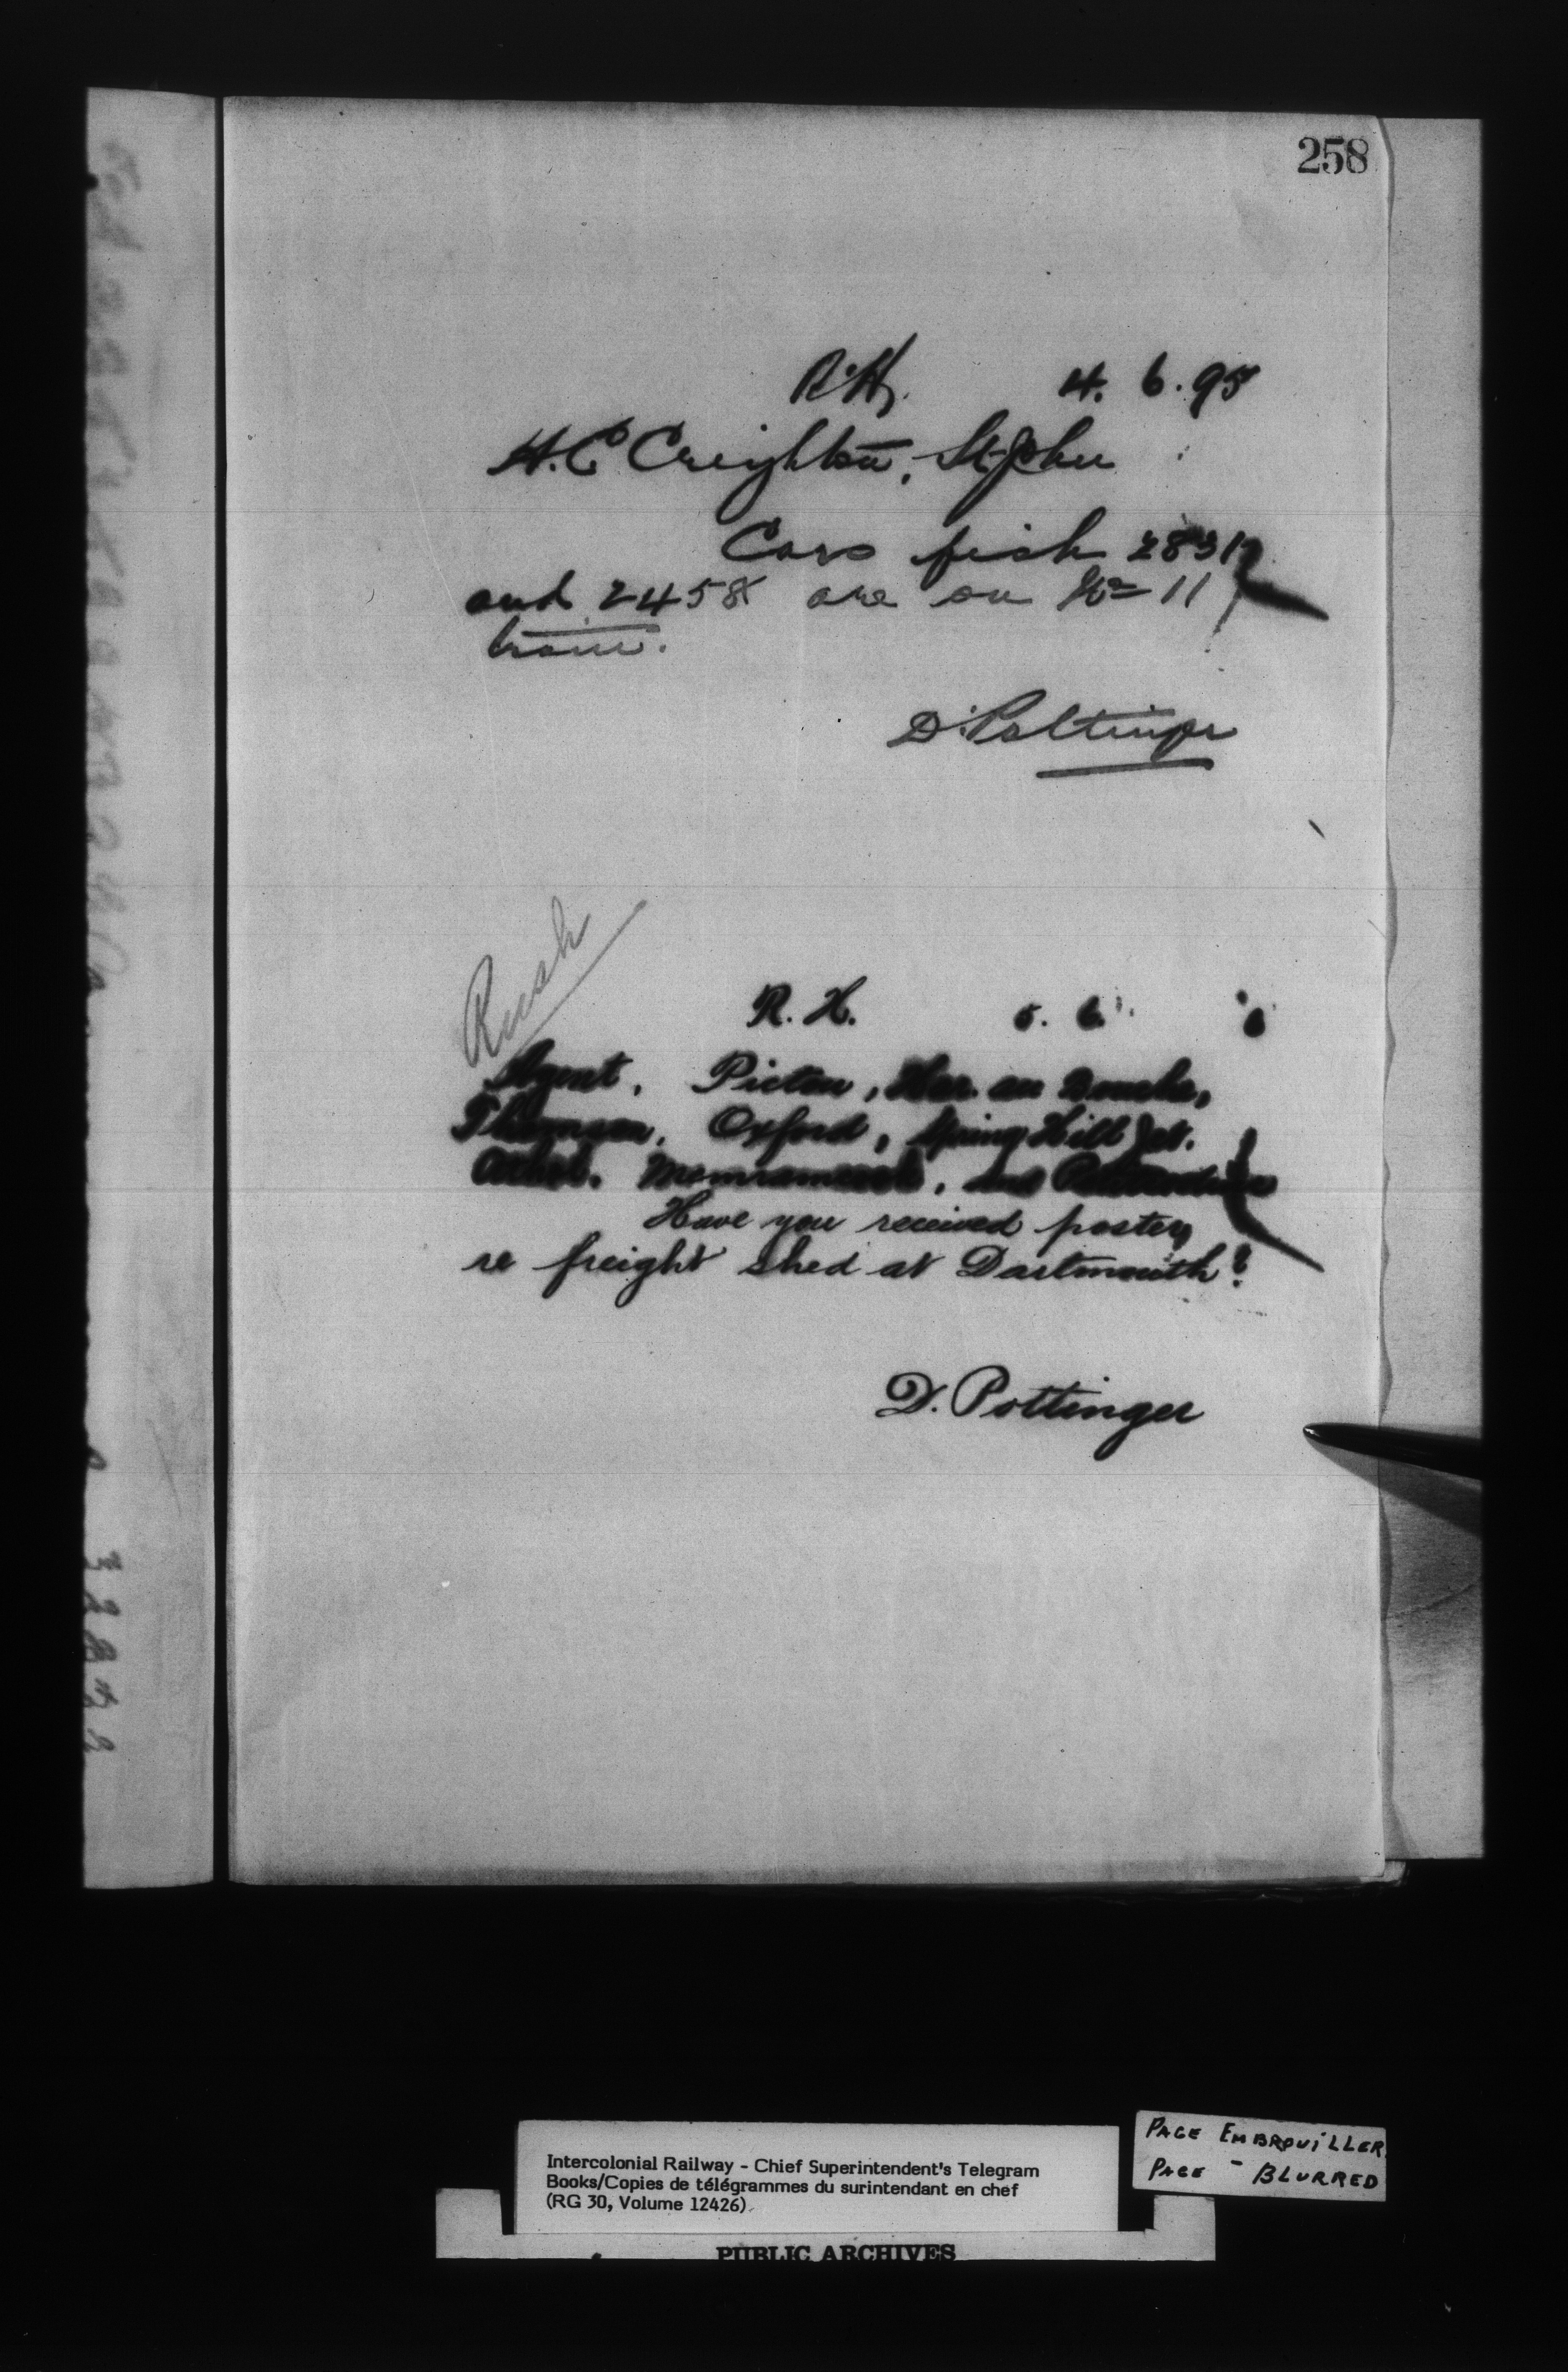 258
R.H. 4. 6. 95
H.C Creighton, St John
Cars fish 2831
and 2458 are on No 11
train.
D. Pottinger
Rush
R. H. 5. 6.
Agent, Pictou, Har. au Bouche,
Thomson, Oxford, Spring Hill Jct.
Athol, Memramcook, and
Have you received poster
re freight shed at Dartmouth?
D. Pottinger
Intercolonial Railway - Chief Superintendent's Telegram
Books/Copies de télégrammes du surintendant en chef
(RG 30, Volume 12426)
PAGE EMBROUILLER
PAGE - BLURRED
PUBLIC ARCHIVES